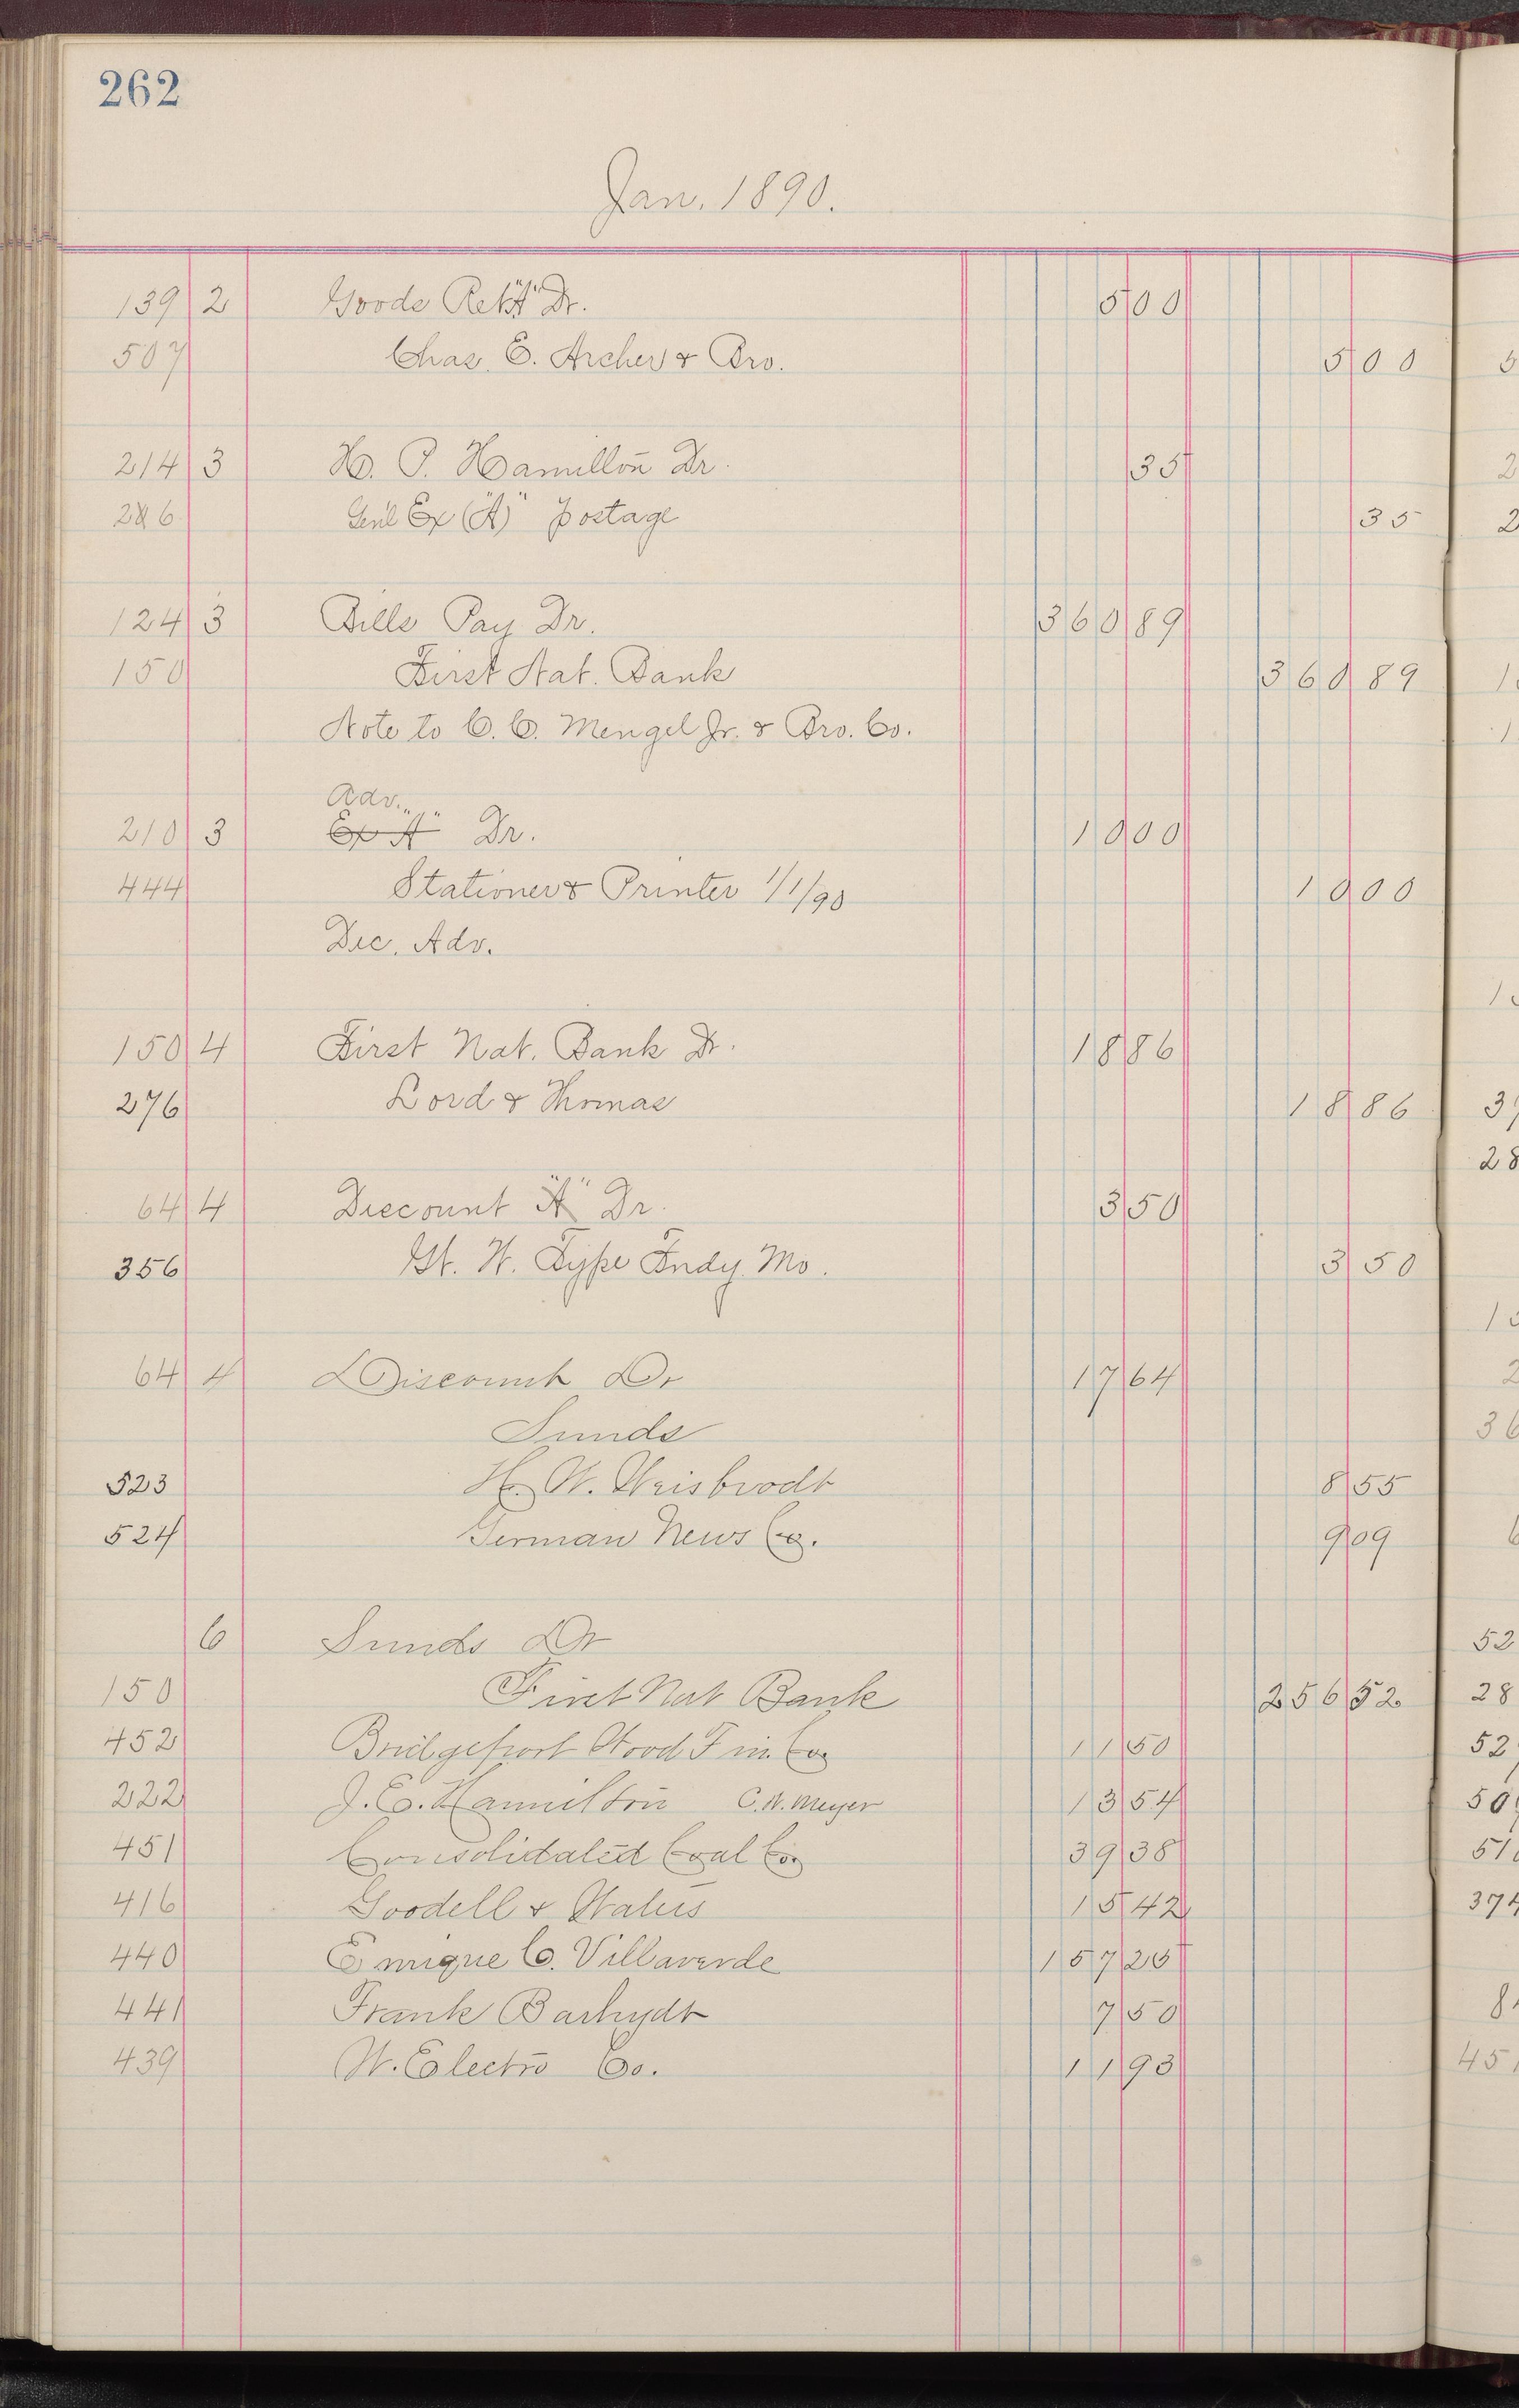 262
Jan. 1890.
139 2 Goods Ret'd "A" Dr. 5 00
507 Chas. E. Archer & Bro. 5 00
214 3 H. P. Hamilton Dr. 35
216 Genl Ex (A) postage 35
124 3 Bills Pay Dr. 360 89
150 First Nat. Bank 360 89
Note to C. C. Mengel Jr. & Bro. Co.
Adv.
210 3 Ex "A" Dr. 10 00
444 Stationer & Printer 1/1/90 10 00
Dec. Adv.
150 4 First Nat. Bank Dr. 18 86
276 Lord & Thomas 18 86
64 4 Discount "A" Dr. 3 50
356 St. W. Type Indy. Mo. 3 50
64 4 Discount Dr 17 64
Sunds
523 H. W. Weisbrodt 8 55
524 German News Co. 9 09
6 Sunds Dr
150 First Nat Bank 256 52
452 Bridgeport Wood Fin. Co. 11 50
222 J. C. Hamilton C. W. Meyer 13 54
451 Consolidated Coal Co. 39 38
416 Goodell & Waters 15 42
440 Enrique C. Villaverde 157 25
441 Frank Barhydt 7 50
439 W. Electro Co. 11 93